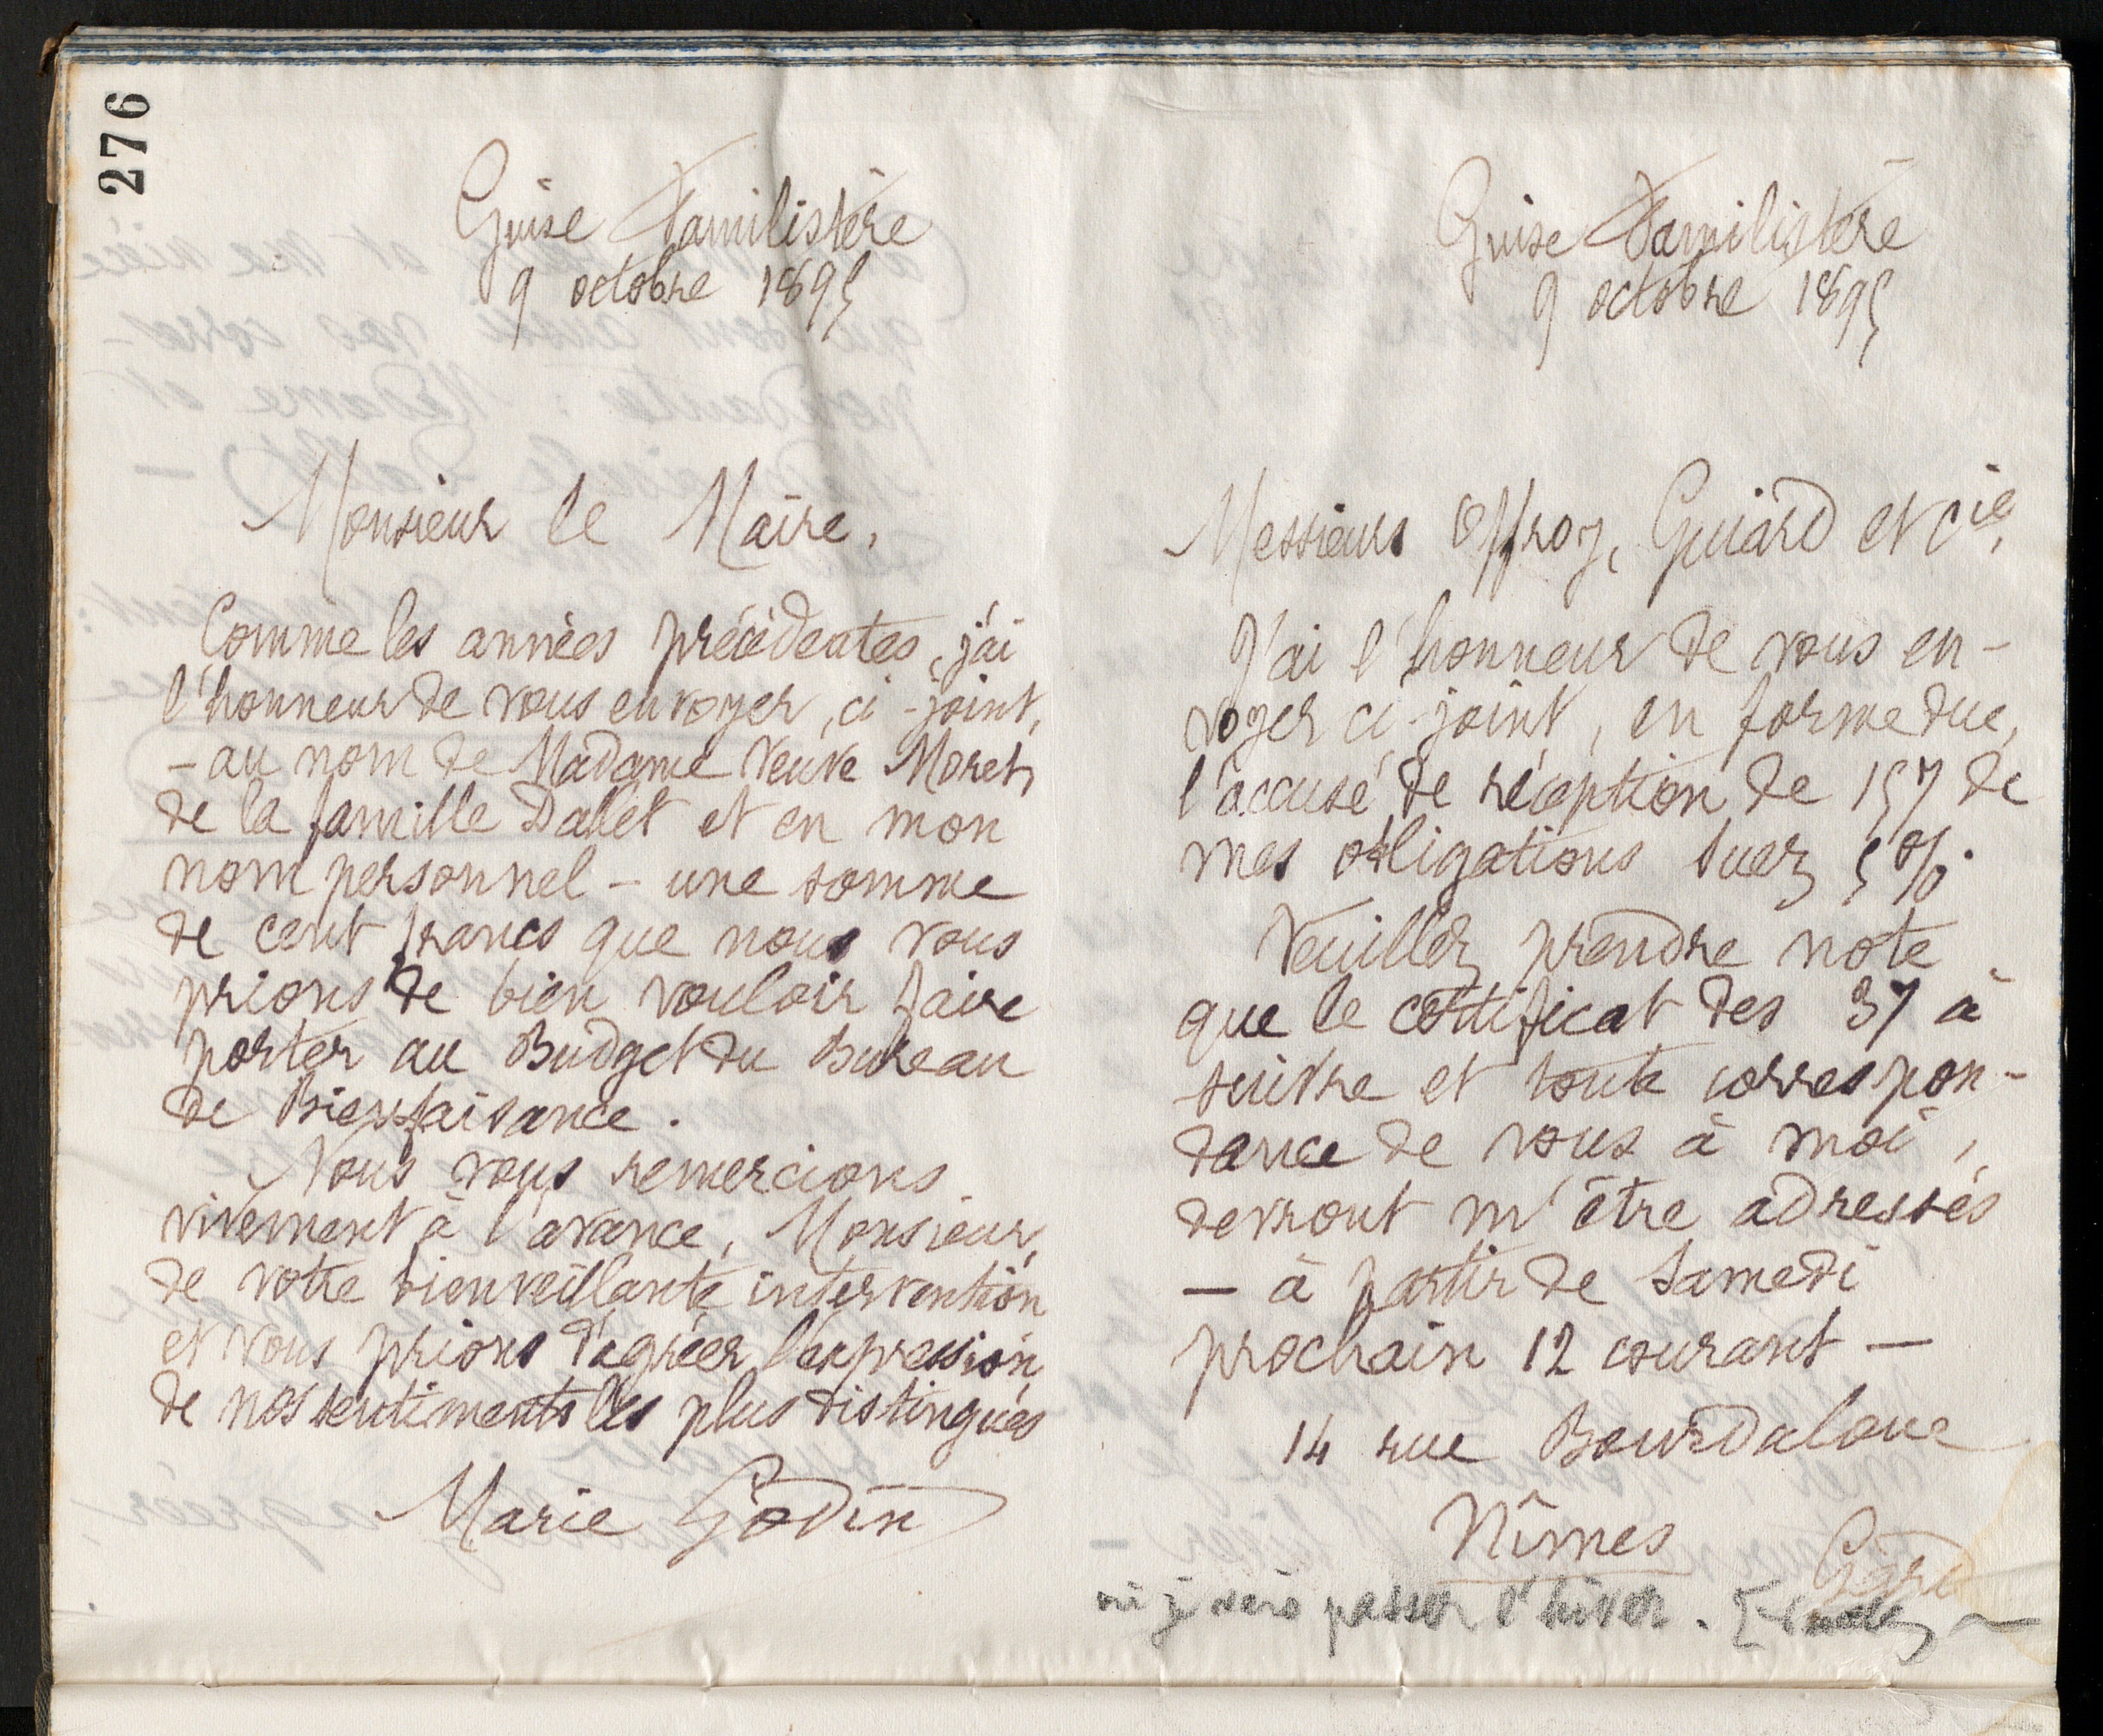 276
Guise Familistère
9 octobre 1895
Monsieur le Maire,
Comme les années précédentes, j'ai
l'honneur de vous envoyer, ci-joint,
- au nom de Madame Veuve Moret,
de la famille Dallet et en mon
nom personnel - une somme
de cent francs que nous vous
prions de bien vouloir faire
porter au Budget du Bureau
de Bienfaisance.
Nous vous remercions
vivement à l'avance, Monsieur,
de votre bienveillante intervention
et vous prions d'agréer l'expression
de nos sentiments les plus distingués
Marie Godin
Guise Familistère
9 octobre 1895
Messieurs Offroy, Guiard et Cie,
J'ai l'honneur de vous en-
voyer ci-joint, en forme due,
l'accusé de réception de 157 de
mes obligations Suez 5 %.
Veuillez prendre note
que le certificat des 37 à
suivre et toute correspon-
dance de vous à moi,
devront m'être adressés
— à partir de Samedi
prochain 12 courant —
14 rue Bourdaloue
Nîmes
Gard
où je vais passer l'hiver.